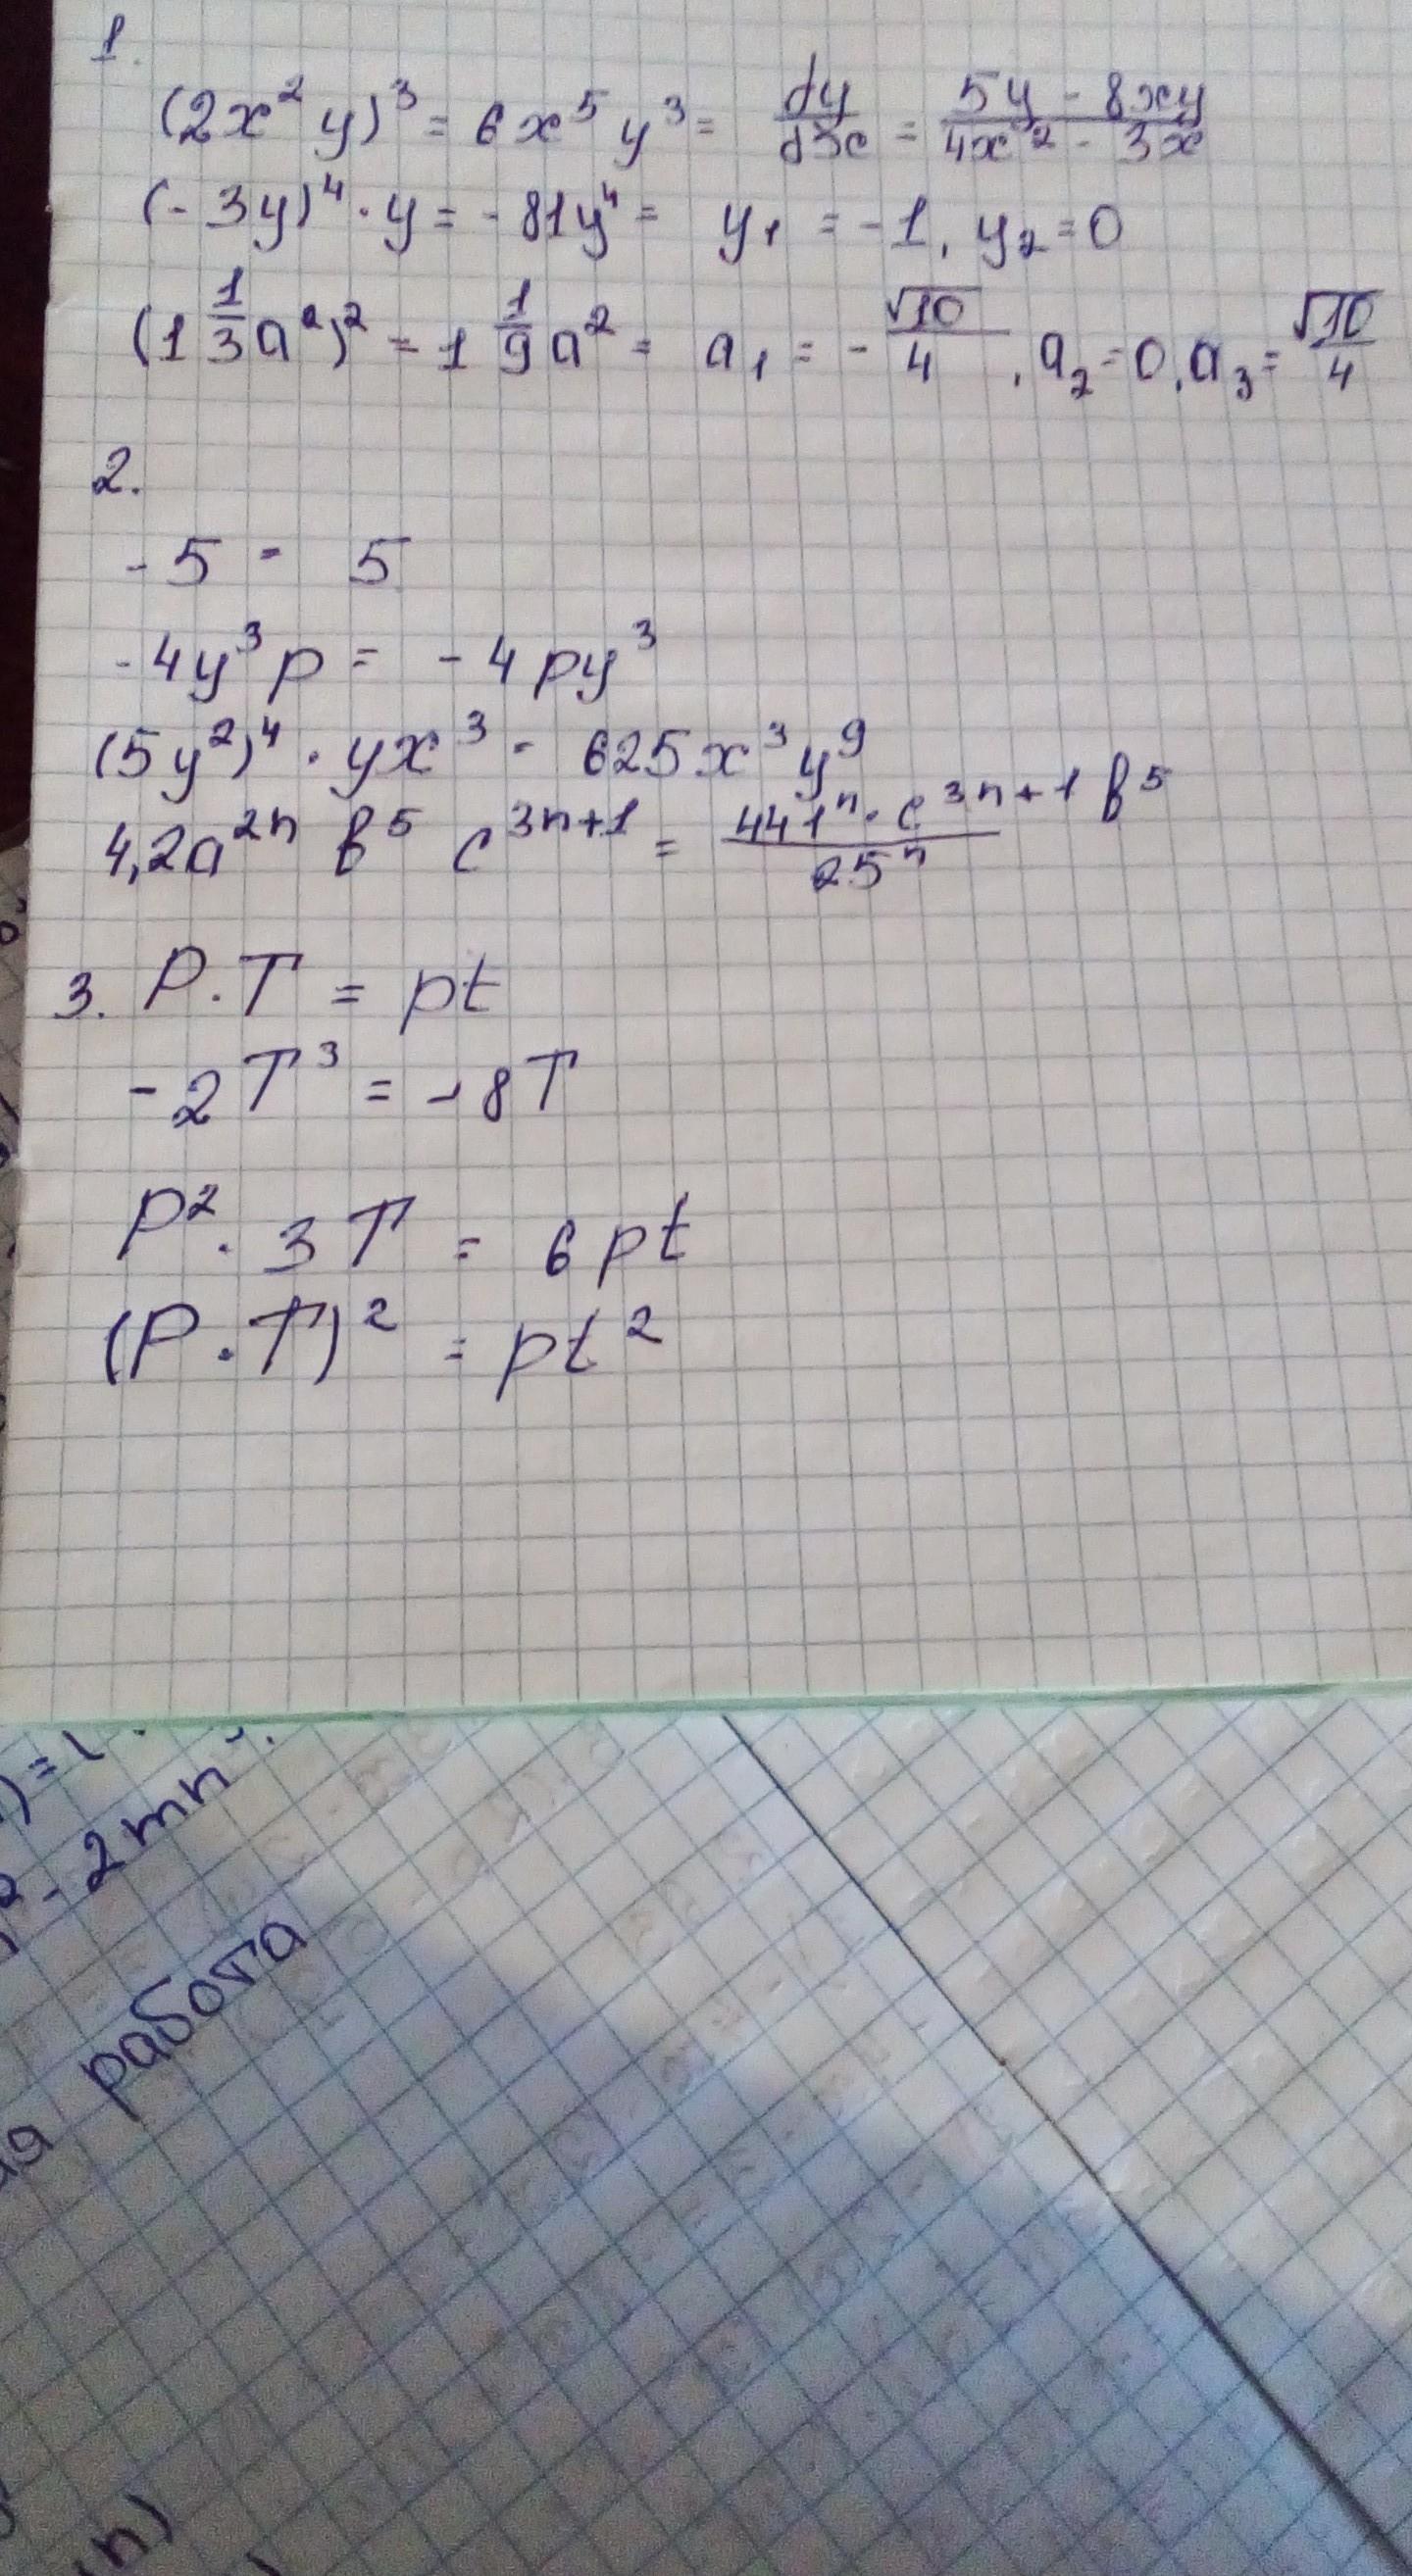 1.
(2x² y)³ = 6x⁵ y³ = dy/dx = (5y - 8xy)/(4x² - 3x)
(-3y)⁴ · y = -81y⁴ = y₁ = -1, y₂ = 0
(1 1/3 a²)² = 1 1/9 a² = a₁ = - √10/4, a₂ = 0, a₃ = √10/4
2.
-5 = 5
-4y³p = -4py³
(5y²)⁴ · yx³ = 625x³y⁹
4,2a²ⁿ b⁵ c³ⁿ⁺¹ = (441ⁿ · c³ⁿ⁺¹ b⁵)/25ⁿ
3. P · T = pt
-2T³ = -8T
P² · 3T = 6pt
(P · T)² = pt²
- 2mn
работа
n)